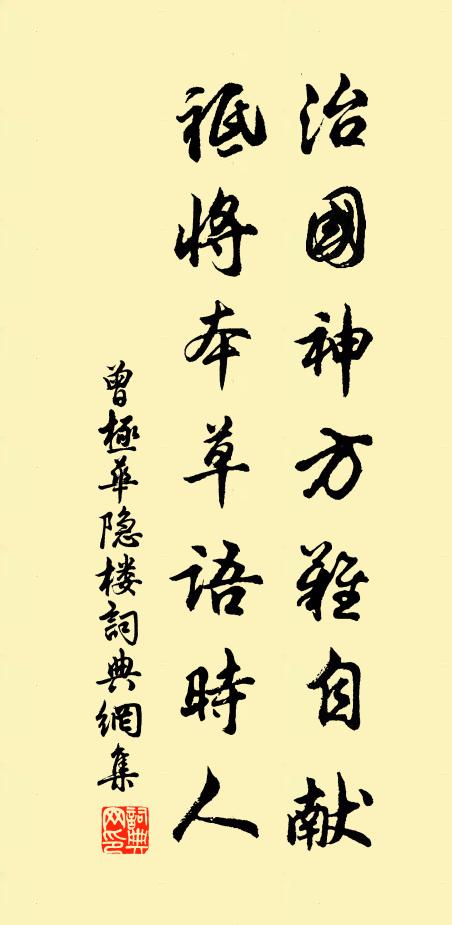 治國神方難自献
祗將本草語時人
曾極華隐楼詞典網集
詞典网印